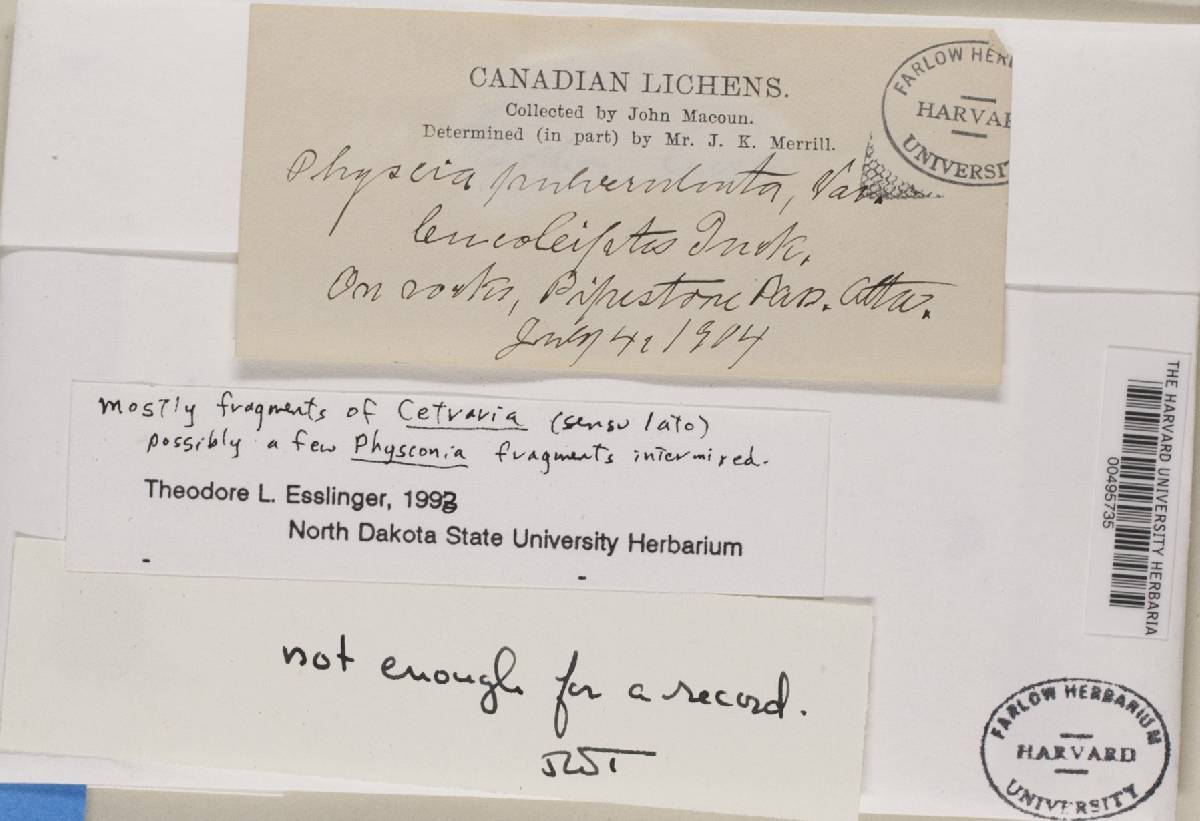 CANADIAN LICHENS.
Collected by John Macoun.
Determined (in part) by Mr. J. K. Merrill.
FARLOW HER
HARVAR
UNIVERSIT
Physcia pulverulenta, Var.
leucoleiptes Tuck.
On rocks, Pipestone Pass. Alta.
July 4, 1904
mostly fragments of Cetraria (sensu lato)
possibly a few Physconia fragments intermixed.
Theodore L. Esslinger, 1993
North Dakota State University Herbarium
THE HARVARD UNIVERSITY HERBARIA
00495735
not enough for a record.
FARLOW HERBARIUM
HARVARD
UNIVERSITY